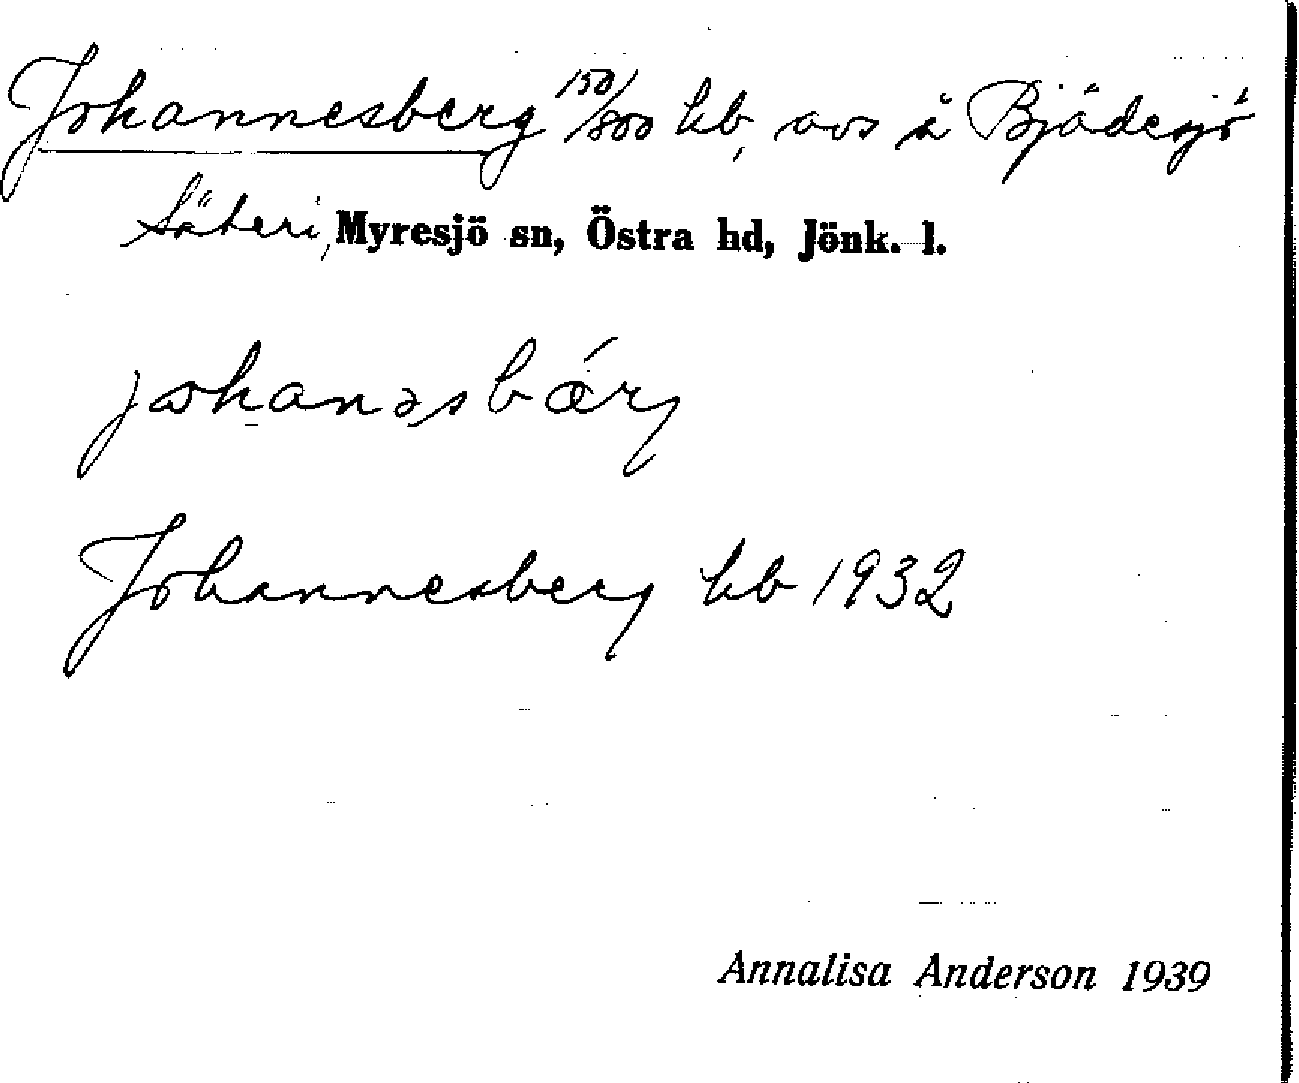 Johannesberg 150/800 hb, avs å Bjädesjö
Säteri, Myresjö sn, Östra hd, Jönk. l.
johanəsbǽrj
Johannesberg hb 1932
Annalisa Anderson 1939